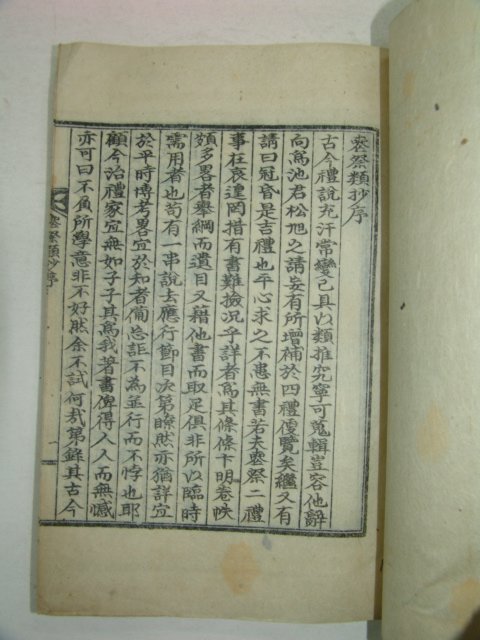 喪祭類抄序
古今禮說充汗常變已具以類推究寧可蒐輯豈容他辭
向爲池君松旭之請妄有所增補於四禮便覽矣繼又有
請曰冠昏是吉禮也平心求之不患無書若夫喪祭二禮
事在哀遑罔措有書難撿況乎詳者爲其條條卞明卷帙
頗多畧者擧綱而遺目又藉他書而取足俱非所以臨時
需用者也苟有一串說去應行節目次第瞭然亦猶詳宜
於平時博考畧宜於知者備忘詎不爲並行而不悖也耶
顧今治禮家宜無如子子其爲我著書俾得人人而無憾
亦可曰不負所學意非不好然余不試何哉第錄其古今
喪祭類抄序
一